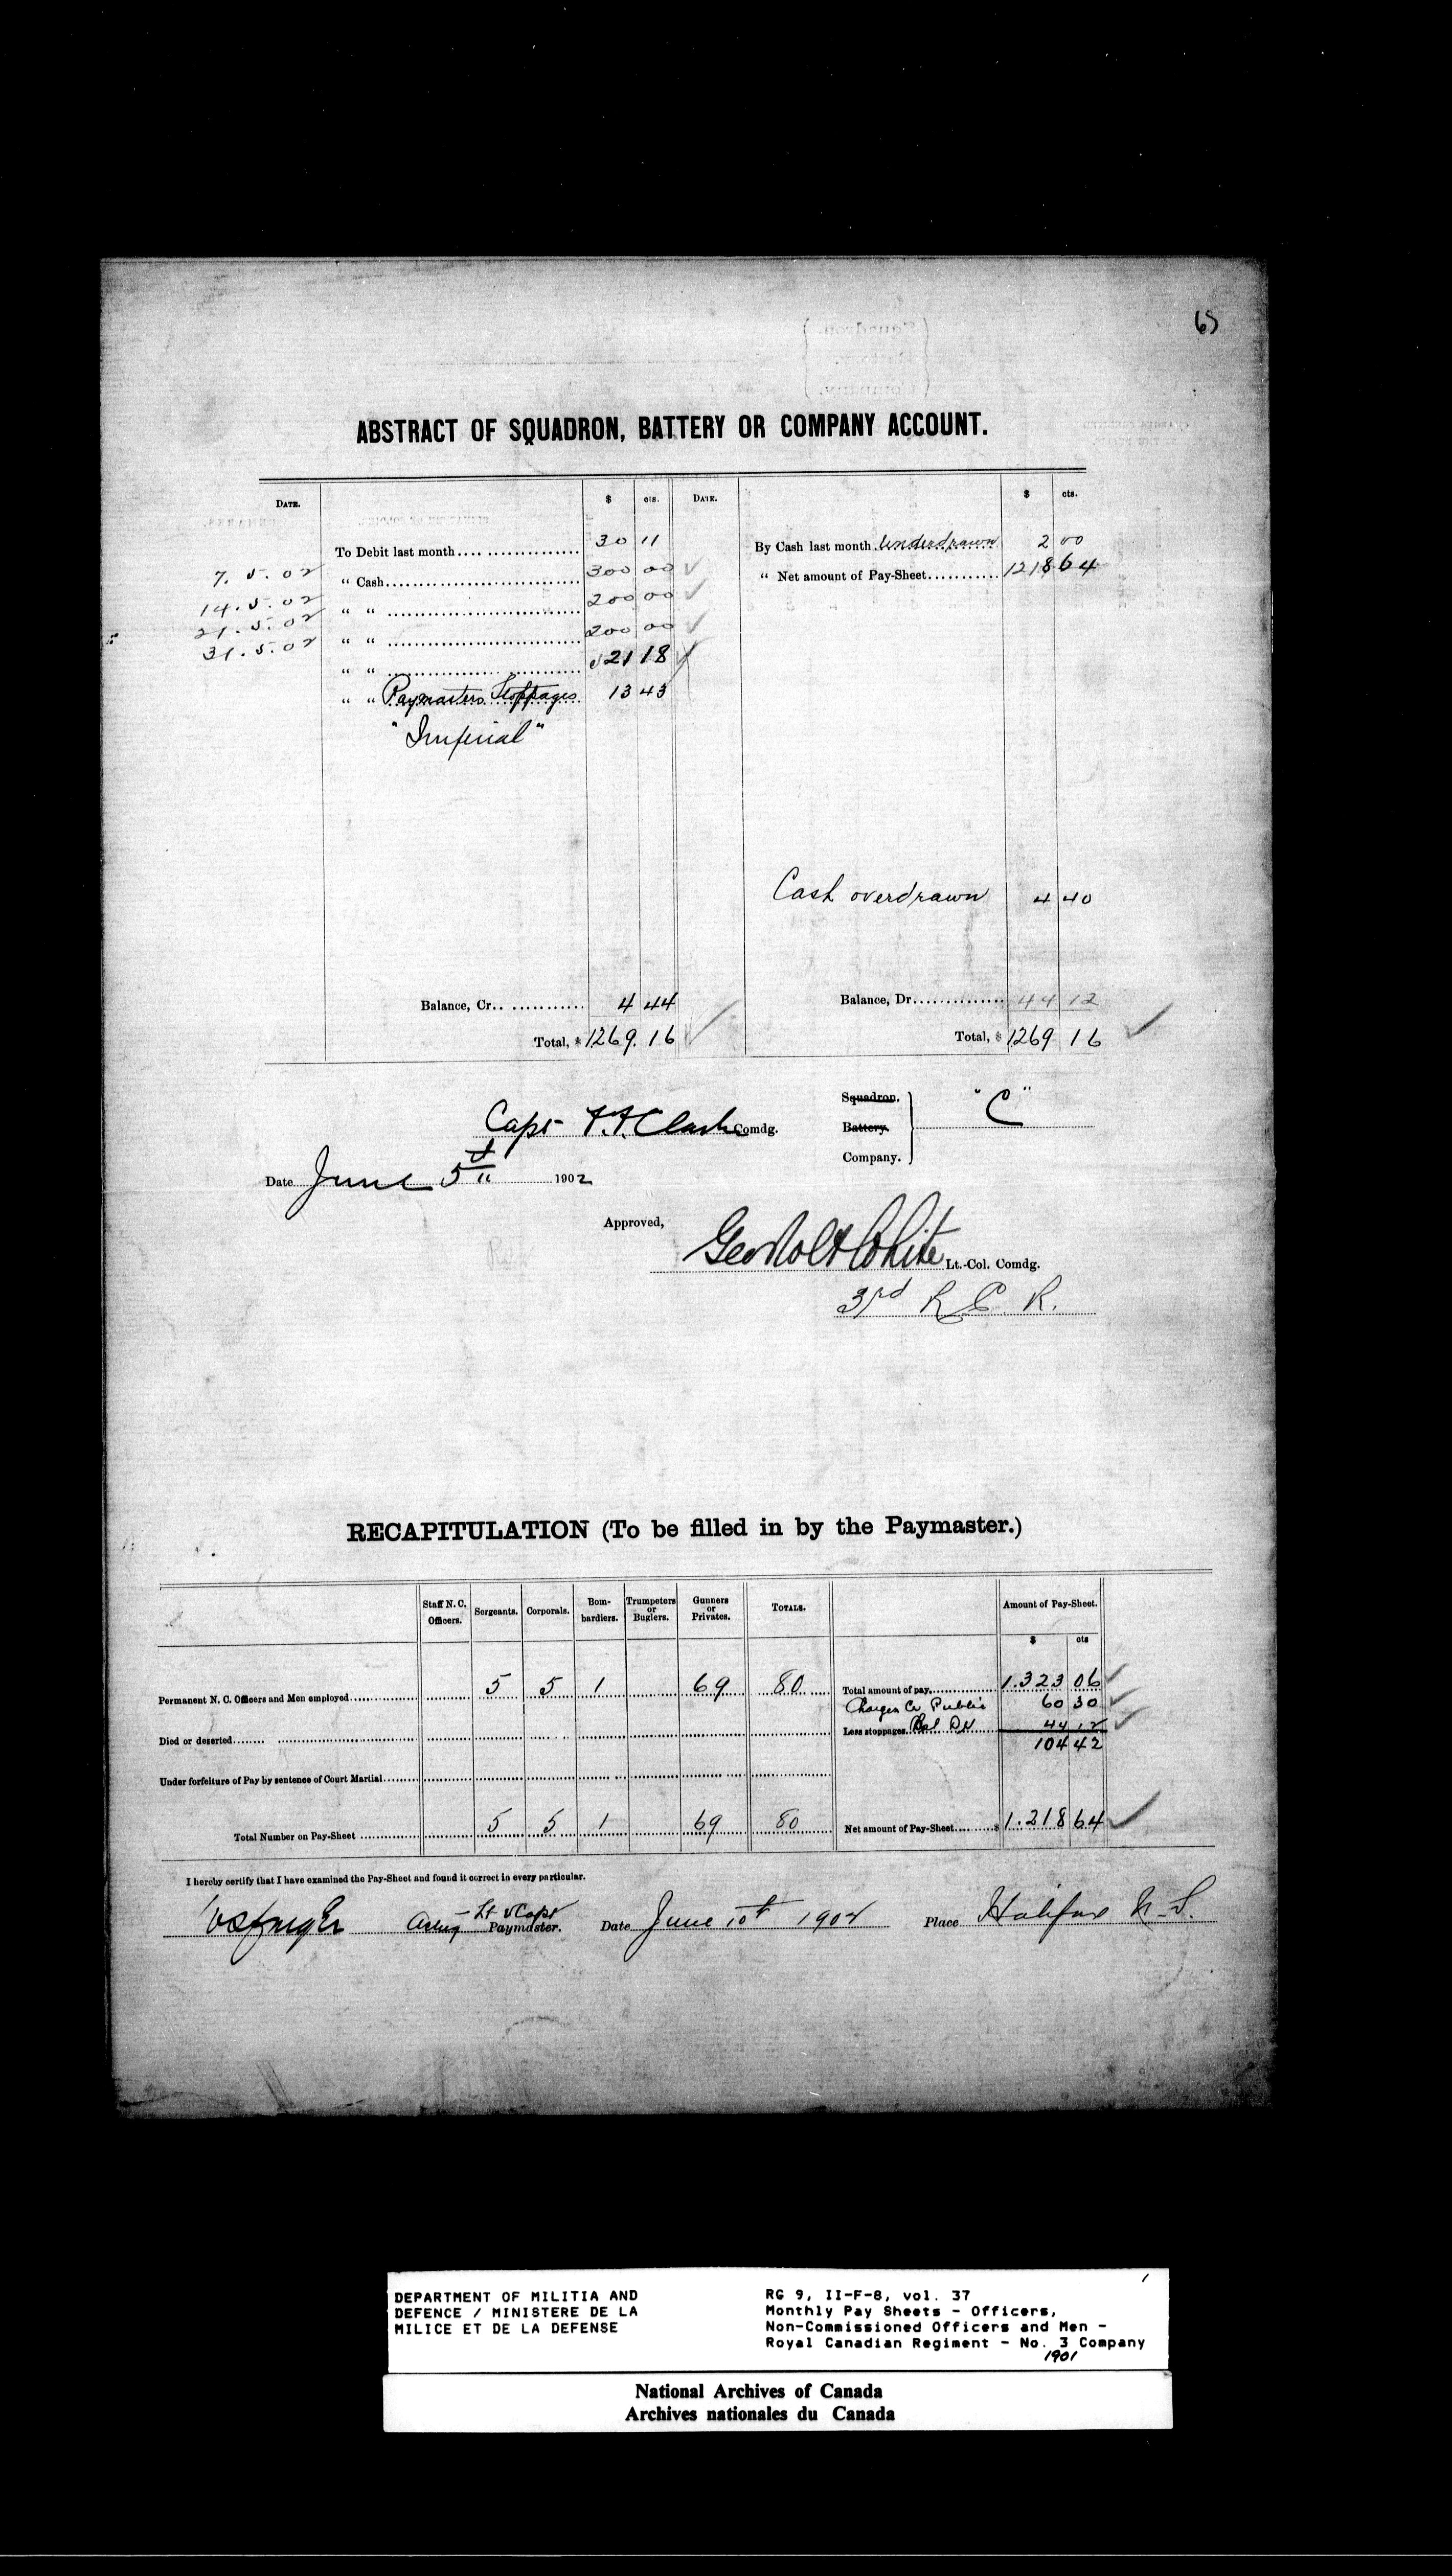 65
ABSTRACT OF SQUADRON, BATTERY OR COMPANY ACCOUNT.
DATE. $ cts. DATE. $ cts.
To Debit last month 30 11 By Cash last month Underdrawn 2 00
7.5.02 " Cash 300 00 " Net amount of Pay-Sheet 1218 64
14.5.02 " " 200 00
21.5.02 " " 200 00
31.5.02 " " 521 18
" " Paymasters Stoppages 13 43
"Imperial"
Cash overdrawn 4 40
Balance, Cr. 4 44 Balance, Dr. 44 12
Total, $ 1269.16 Total, $ 1269 16
Capt Comdg. Squadron. Battery. Company. "C"
Date June 5th 1902
Approved,
White Lt.-Col. Comdg.
3rd R C R.
RECAPITULATION (To be filled in by the Paymaster.)
Staff N. C. Officers. Sergeants. Corporals. Bombardiers. Trumpeters or Buglers. Gunners or Privates. TOTALS. Amount of Pay-Sheet.
$ cts
Permanent N. C. Officers and Men employed 5 5 1 69 80 Total amount of pay 1.323 06
Charges Public 60 30
Died or deserted Less stoppages Bal Dr 44 12
104 42
Under forfeiture of Pay by sentence of Court Martial
Total Number on Pay-Sheet 5 5 1 69 80 Net amount of Pay-Sheet $ 1.218 64
I hereby certify that I have examined the Pay-Sheet and found it correct in every particular.
Lt & Capt
Acting Paymaster. Date June 10th 1902 Place Halifax N.S.
1
DEPARTMENT OF MILITIA AND
DEFENCE / MINISTERE DE LA
MILICE ET DE LA DEFENSE
RG 9, II-F-8, vol. 37
Monthly Pay Sheets - Officers,
Non-Commissioned Officers and Men -
Royal Canadian Regiment - No. 3 Company
1901
National Archives of Canada
Archives nationales du Canada